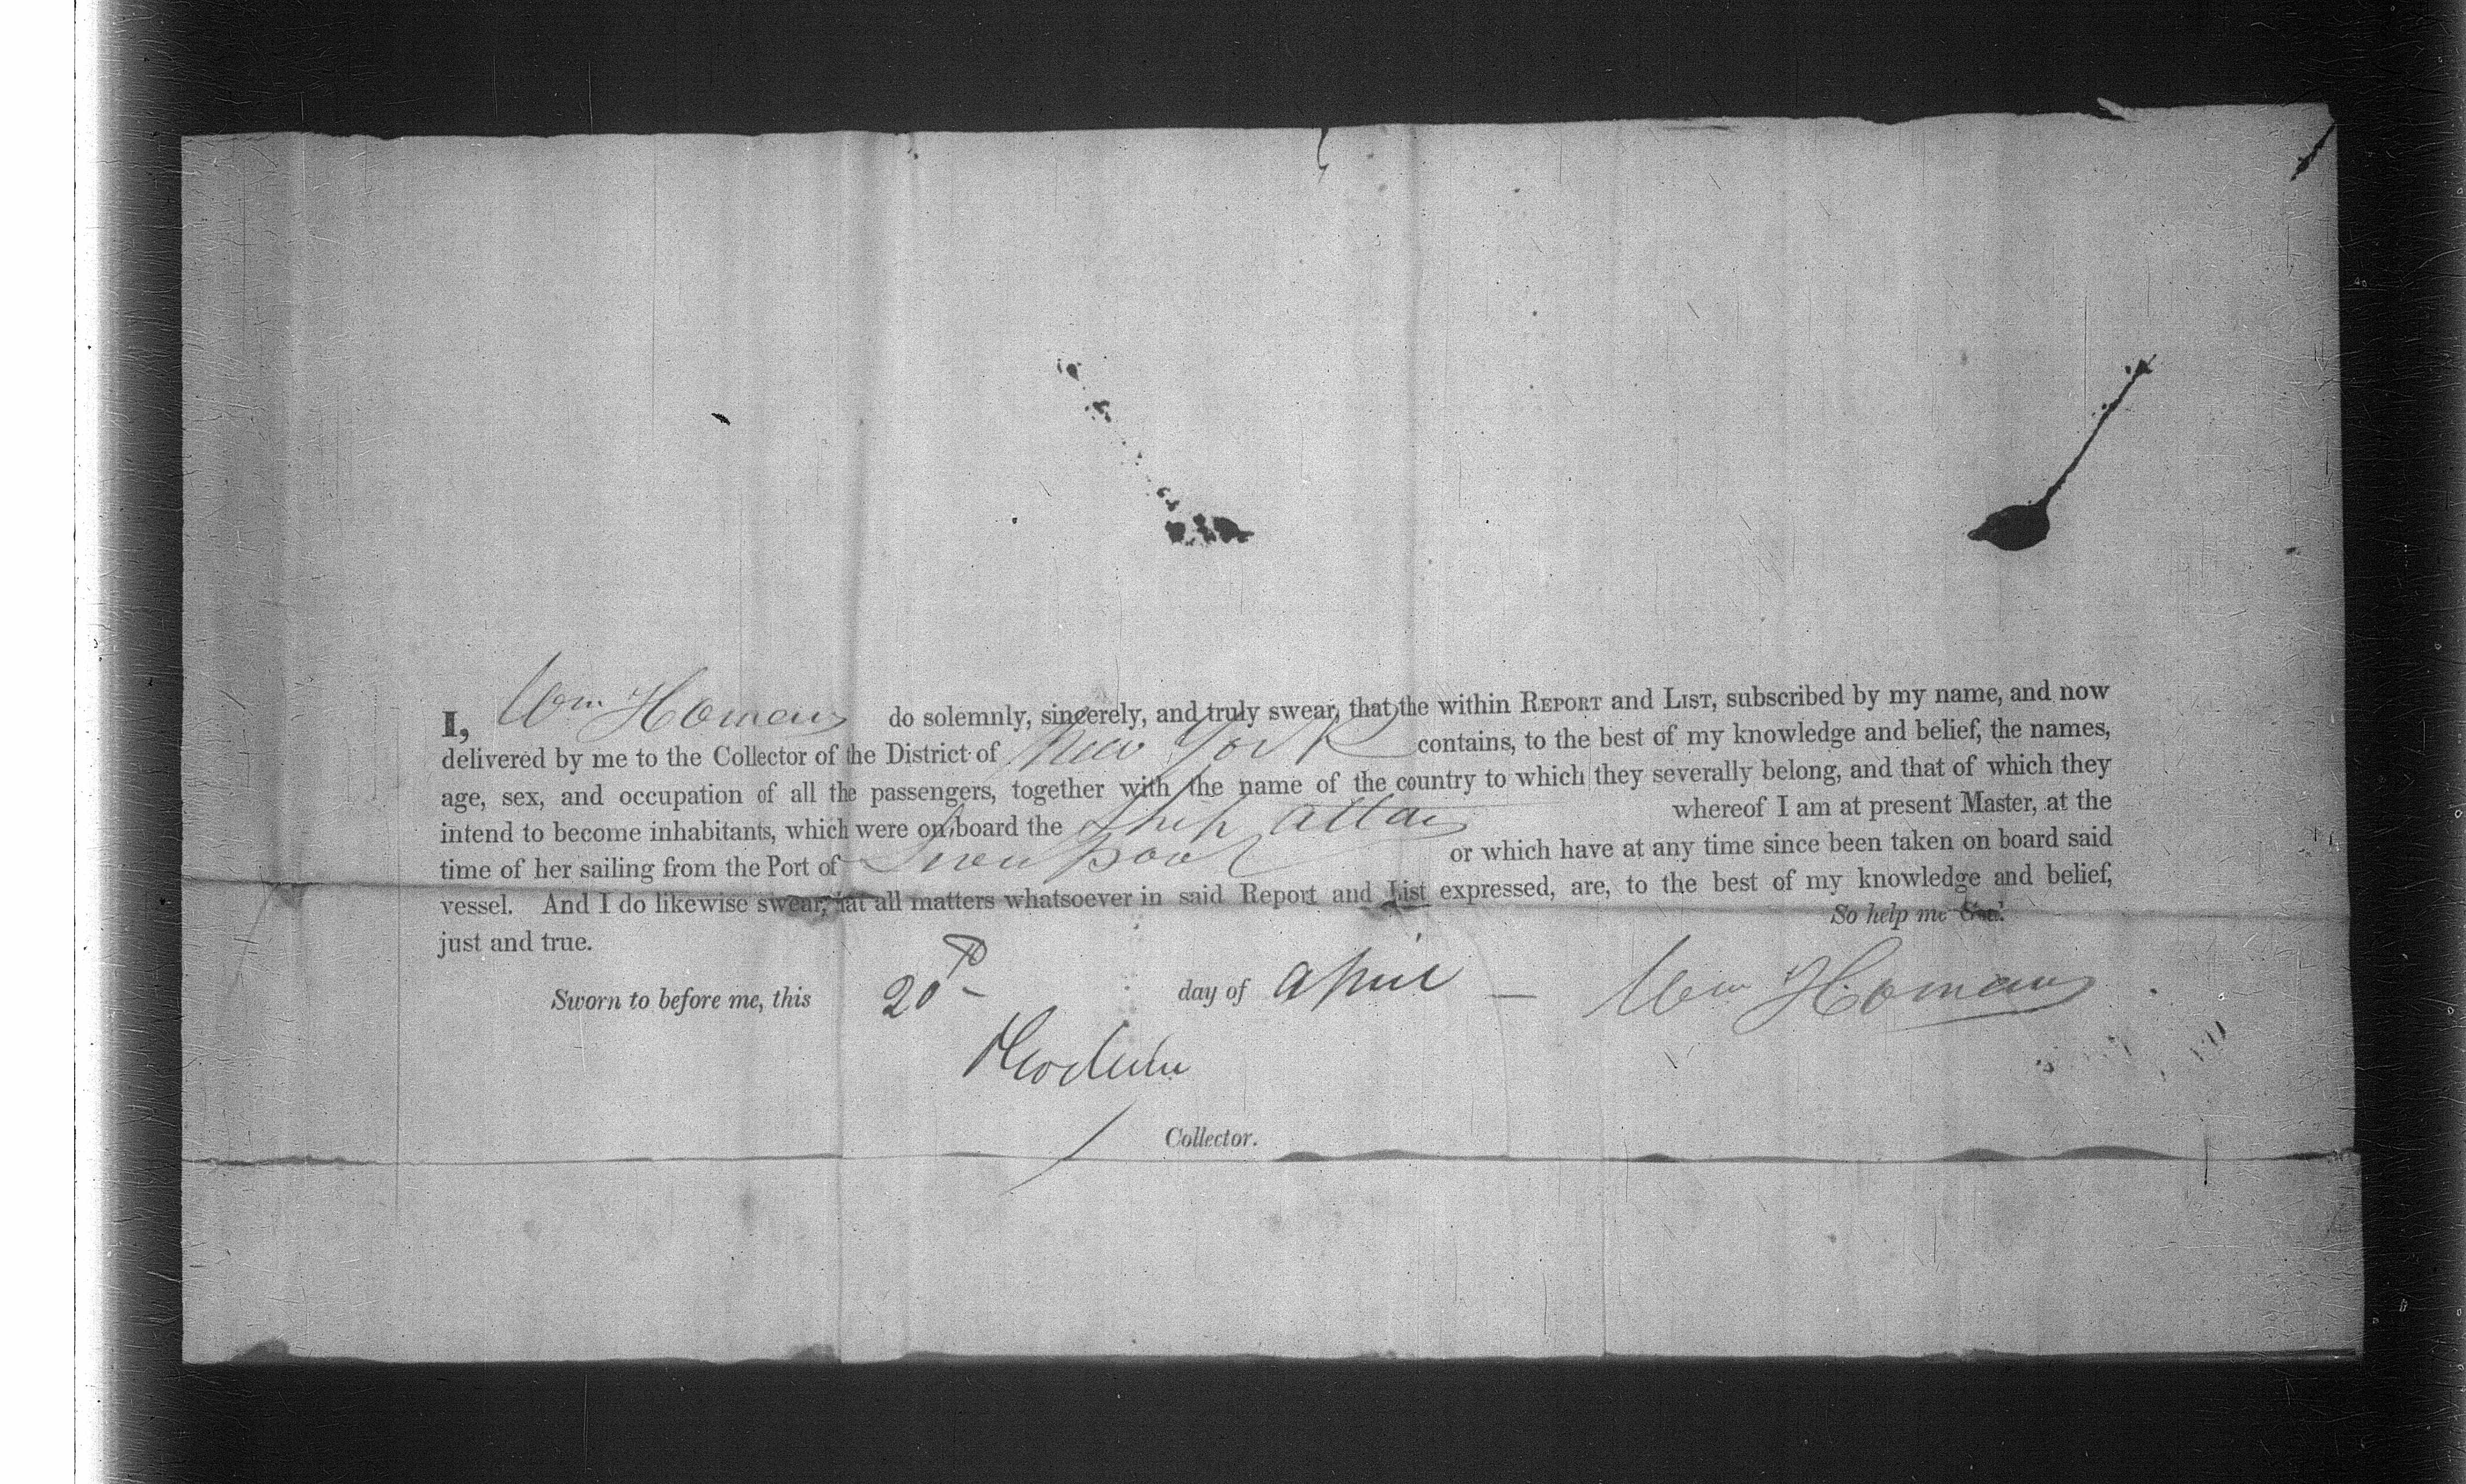 I, Wm Homans do solemnly, sincerely, and truly swear, that the within REPORT and LIST, subscribed by my name, and now
delivered by me to the Collector of the District of New York contains, to the best of my knowledge and belief, the names,
age, sex, and occupation of all the passengers, together with the name of the country to which they severally belong, and that of which they
intend to become inhabitants, which were on board the Ship whereof I am at present Master, at the
time of her sailing from the Port of Liverpool or which have at any time since been taken on board said
vessel. And I do likewise swear, that all matters whatsoever in said Report and List expressed, are, to the best of my knowledge and belief,
just and true. So help me God.
Sworn to before me, this 20th day of April — Wm Homans
Collector.